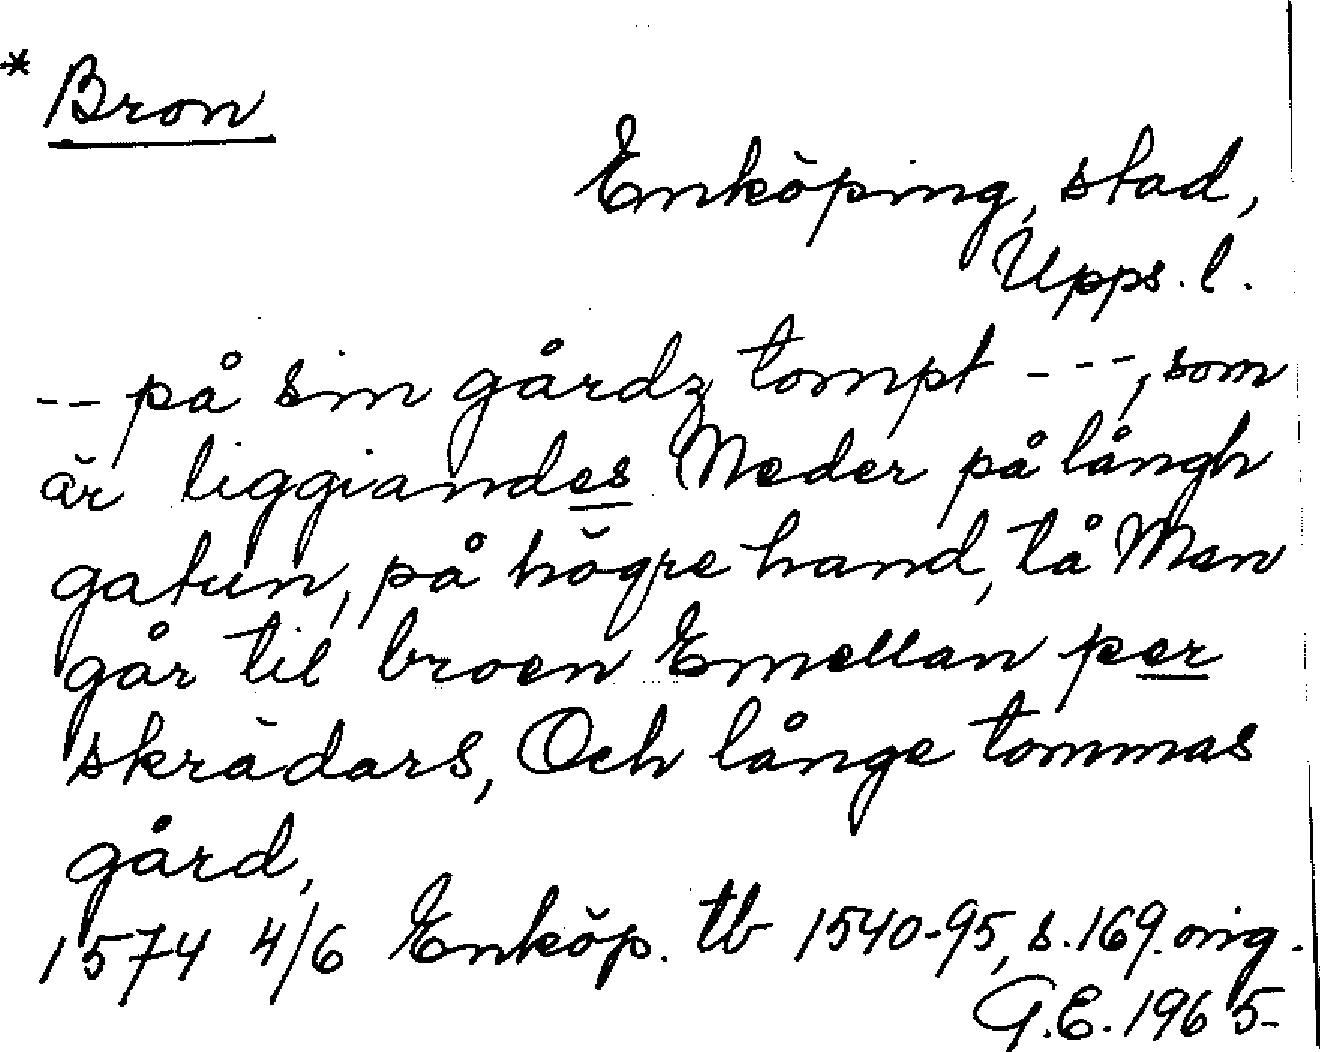 * Bron
Enköping, stad,
Upps. l.
-- på sin gårdz tompt ---, som
är liggiandes Neder på långh
gatun, på högre hand, tå Man
går til broen Emellan per
skrädars, Och långe tommas
gård,
1574 4/6 Enköp. tb 1540-95, s. 169. orig.
G.E. 1965